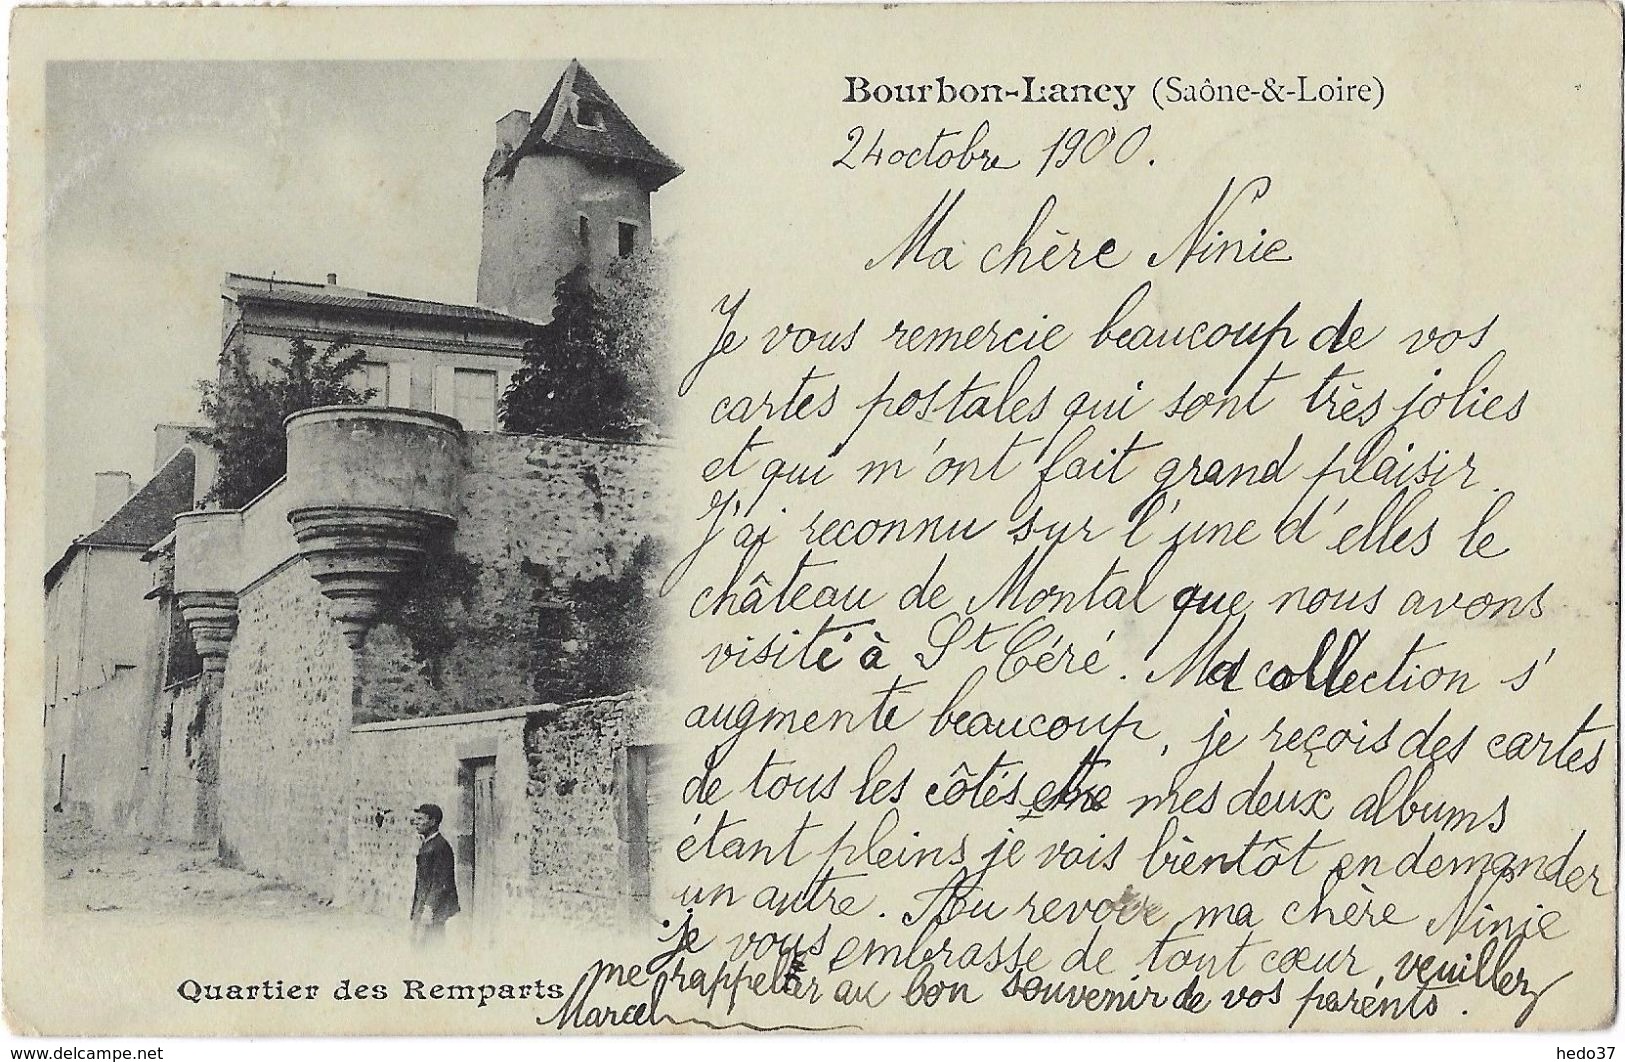 Bourbon-Lancy (Saône-&-Loire)
24 octobre 1900.
Ma chère Ninie
Je vous remercie beaucoup de vos
cartes postales qui sont très jolies
et qui m'ont fait grand plaisir.
J'ai reconnu sur l'une d'elles le
château de Montal que nous avons
visité à St Céré. Ma collection s'
augmente beaucoup, je reçois des cartes
de tous les côtés mes deux albums
étant pleins je vais bientôt en demander
un autre. Au revoir ma chère Ninie
je vous embrasse de tout cœur, veuillez
me rappeler au bon souvenir de vos parents.
Marcel
Quartier des Remparts
www.delcampe.net
hedo37